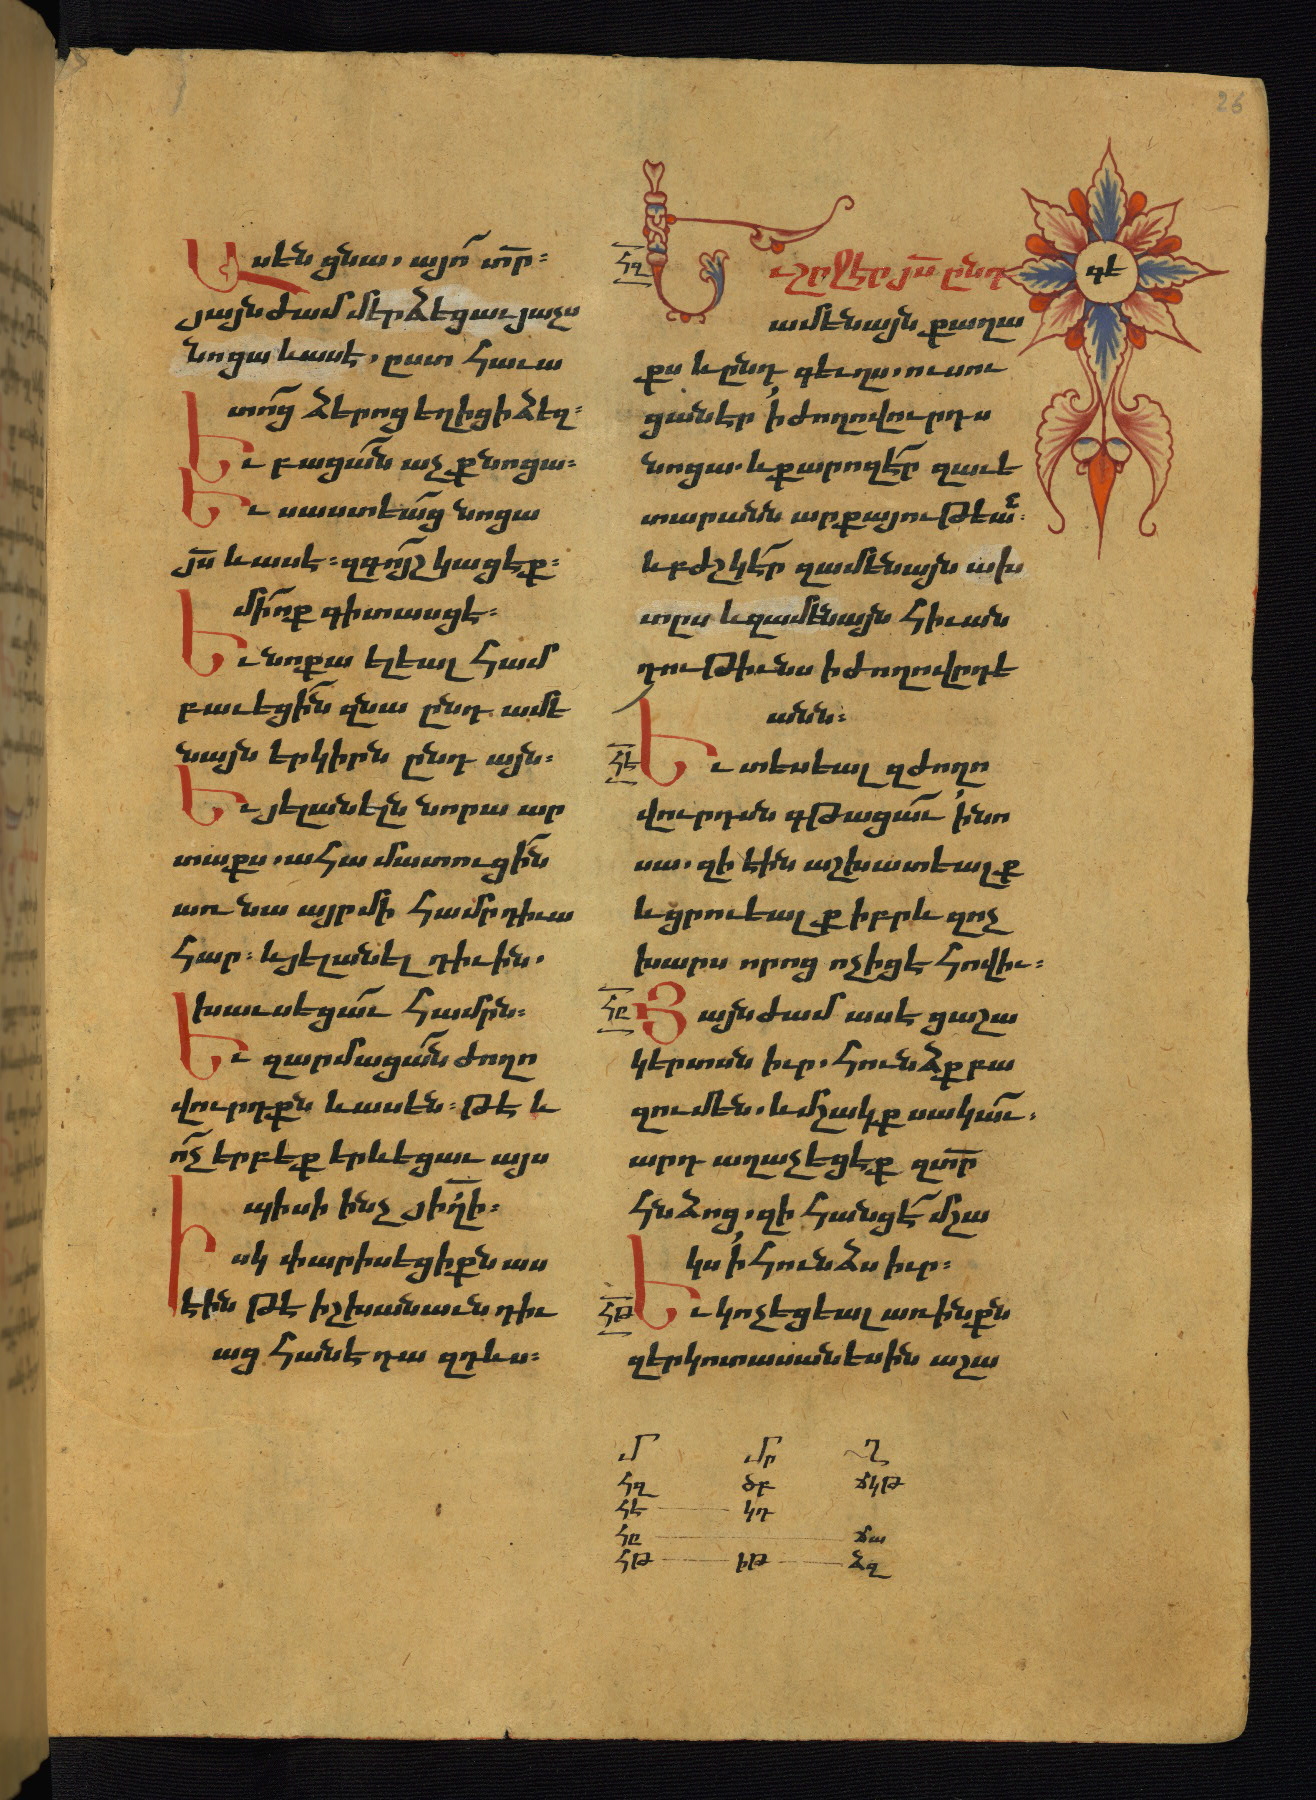 26
Ասեն ցնա․ այո՛ տր։
յայնժամ մերձեցաւ յաչս
նոցա և ասէ․ ըստ հաւա
տո՛ց ձերոց եղիցի ձեզ։
Եւ բացա՛ն աչք նոցա։
Եւ սաստեա՛ց նոցա
յս և ասէ։ զգո՛յշ կացէք։
մի՛ ոք գիտասցէ։
Եւ նոքա ելեալ համ
բաւեցի՛ն զնա ընդ ամե
նայն երկիրն ընդ այն։
Եւ յելանելն նորա ար
տաքս․ ահա մատուցի՛ն
առ նա այր մի համր դիւա
հար։ և յելանել դիւին․
խաւսեցա՛ւ համրն։
Եւ զարմացա՛ն ժողո
վուրդքն և ասեն։ թէ և
ո՛չ երբեք երևեցաւ այս
պիսի ինչ յիղի։
Իսկ փարիսեցիքն աս
էին թէ իշխանաւն դիւ
աց հանէ դա զդևս։
հզ
Եւ շրջէր յս ընդ
գե
ամենայն քաղա
քս և ընդ գեւղս․ ուսու
ցանէր ի ժողովուրդս
նոցա․ և քարոզէ՛ր զաւե
տարանն արքայութեա՛ն։
և բժշկէ՛ր զամենայն ախ
տըս և զամենայն հիւան
դութիւնս ի ժողովրդե
անն։
հէ
Եւ տեսեալ զժողո
վուրդսն գթացա՛ւ ի նո
սա․ զի էին աշխատեալք
և ցրուեալք իբրև զոչ
խարս որոց ոչ իցէ հովիւ։
հը
Յայնժամ ասէ ցաշա
կերտսն իւր․ հունձք բա
զում են․ և մշակք սակա՛ւ։
արդ աղաչեցէք զտր
հնձոց․ զի հանցէ՛ մշա
կս ի հունձս իւր։
հթ
Եւ կոչեցեալ առ ինքն
զերկոտասանեսին աշա
մ մր ղ
հզ ծբ ճկթ
հէ կդ
հը ճա
հթ իթ ձզ